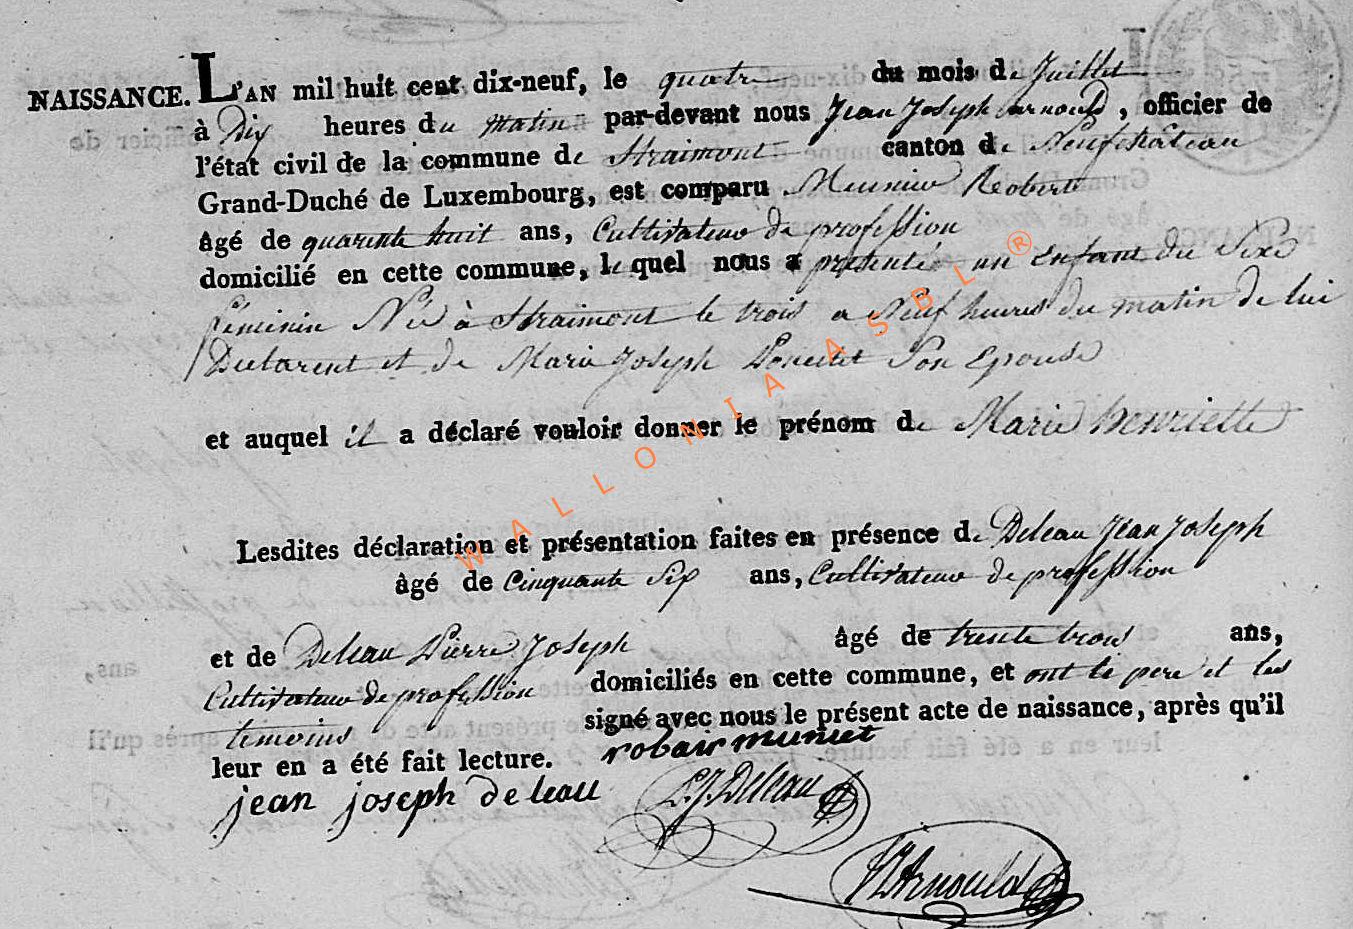 NAISSANCE. L'AN mil huit cent dix-neuf, le quatre du mois de Juillet
à Dix heures du matin par-devant nous Jean Joseph arnould, officier de
l'état civil de la commune de Straimont canton de Neufchâteau
Grand-Duché de Luxembourg, est comparu Meunier Robert
âgé de quarente huit ans, Cultivateur de profession
domicilié en cette commune, le quel nous a présenté un enfant du Sexe
féminin Né à Straimont le trois a Neuf heures du matin de lui
Déclarent et de Marie Joseph Son Epouse
et auquel il a déclaré vouloir donner le prénom de Marie henriette
Lesdites déclaration et présentation faites en présence de Deleau Jean Joseph
âgé de Cinquante Six ans, Cultivateur de profession
et de Deleau Pierre Joseph âgé de trente trois ans,
Cultivateur de profession domiciliés en cette commune, et ont le pere et les
temoins signé avec nous le présent acte de naissance, après qu'il
leur en a été fait lecture. robair muniet
jean joseph deleau P.J. Deleau
JJArnould
WALLONIA ASBL ®